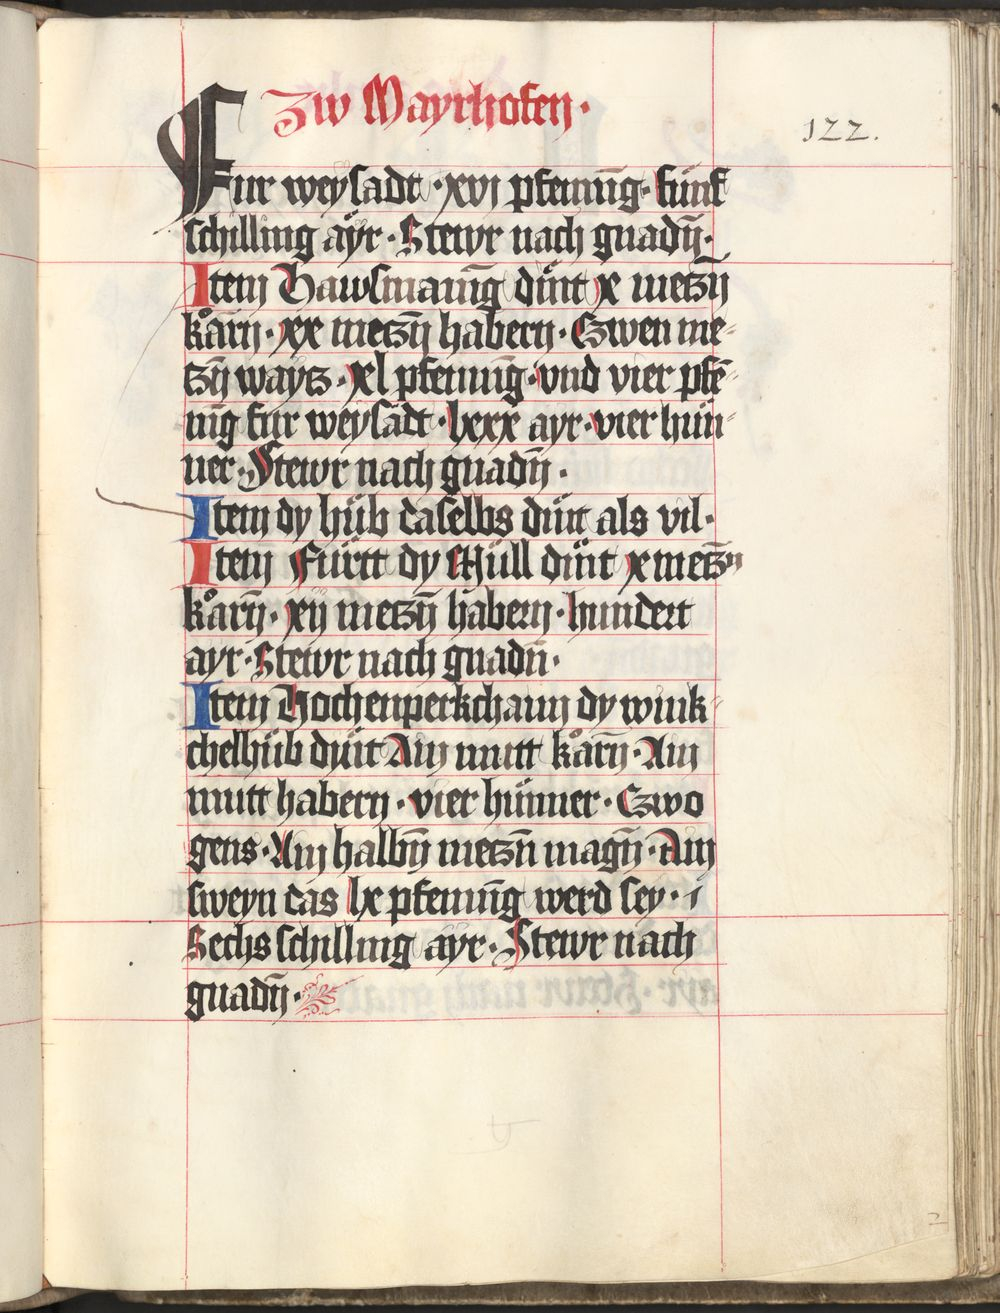 Zw Mayrhofen·
122.
Fur weysadt · xvj pfennīg· fünf
schilling aÿr · Stewr nach gnadn̄·
Item Hawsmanīg dint x metzn̄
kårn̄ · xx metzn̄ habern · Czwen me-
tzn̄ wayts · xl pfennīg · vnd vier pfē-
nīg fur weysadt · lxxx ayr · vier hün-
ner · Stewr nach gnadn̄ ·
Item dy hüb daselbs dint als vil·
Item Fürtt dy Müll dint x metzn̄
kårn̄ · xij metzn̄ habern · hundert
ayr · Stewr nach gnadn̄ ·
Item Hochenperkchaim dy wink-
chelhüb dint Ain mutt kårn̄ · Ain
mutt habern · vier hünner · Czwo
gens · Ain halbn̄ metzn̄ magn̄ · Ain
sweyn das lx pfennīg werd sey ·
Sechs schilling aÿr · Stewr nach
gnadn̄ ·